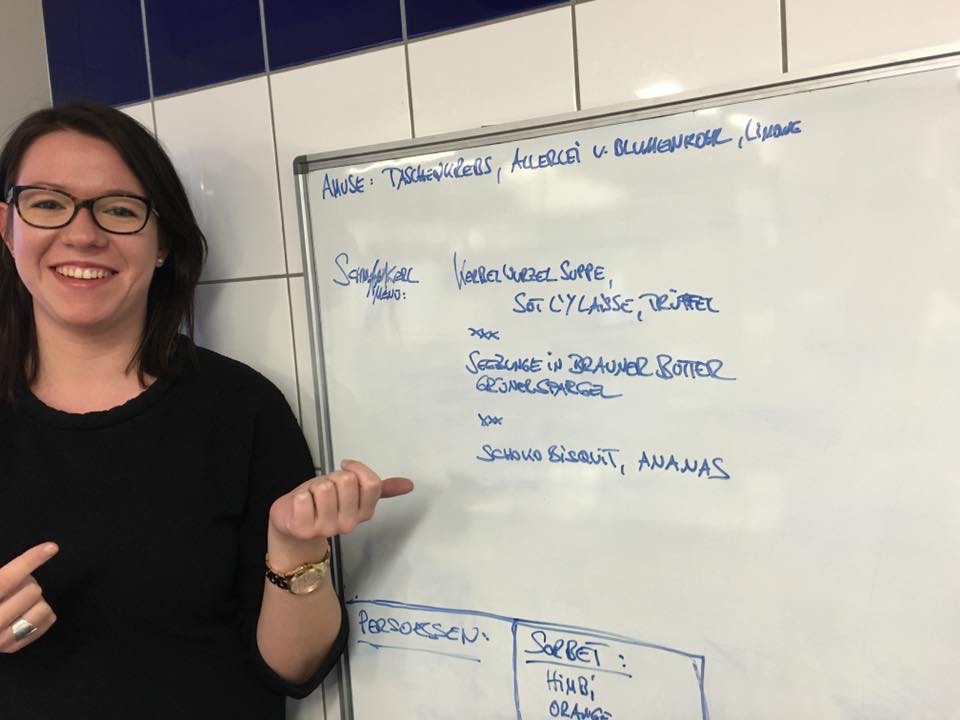 AMUSE: TASCHENKREBS, ALLERLEI V. BLUMENKOHL, LIMONE
SCHMANKERL KERBELWURZEL SUPPE,
MENÜ: SOT L'Y LAISSE, TRÜFFEL
xxx
SEEZUNGE IN BRAUNER BUTTER
GRÜNER SPARGEL
xxx
SCHOKO BISQUIT, ANANAS
PERSOESSEN: SORBET:
HIMBI
ORANGE